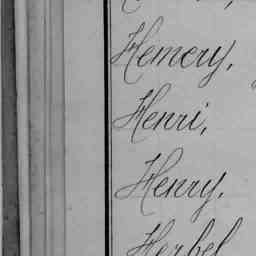 Hemery.
Henri,
Henry.
Herbel